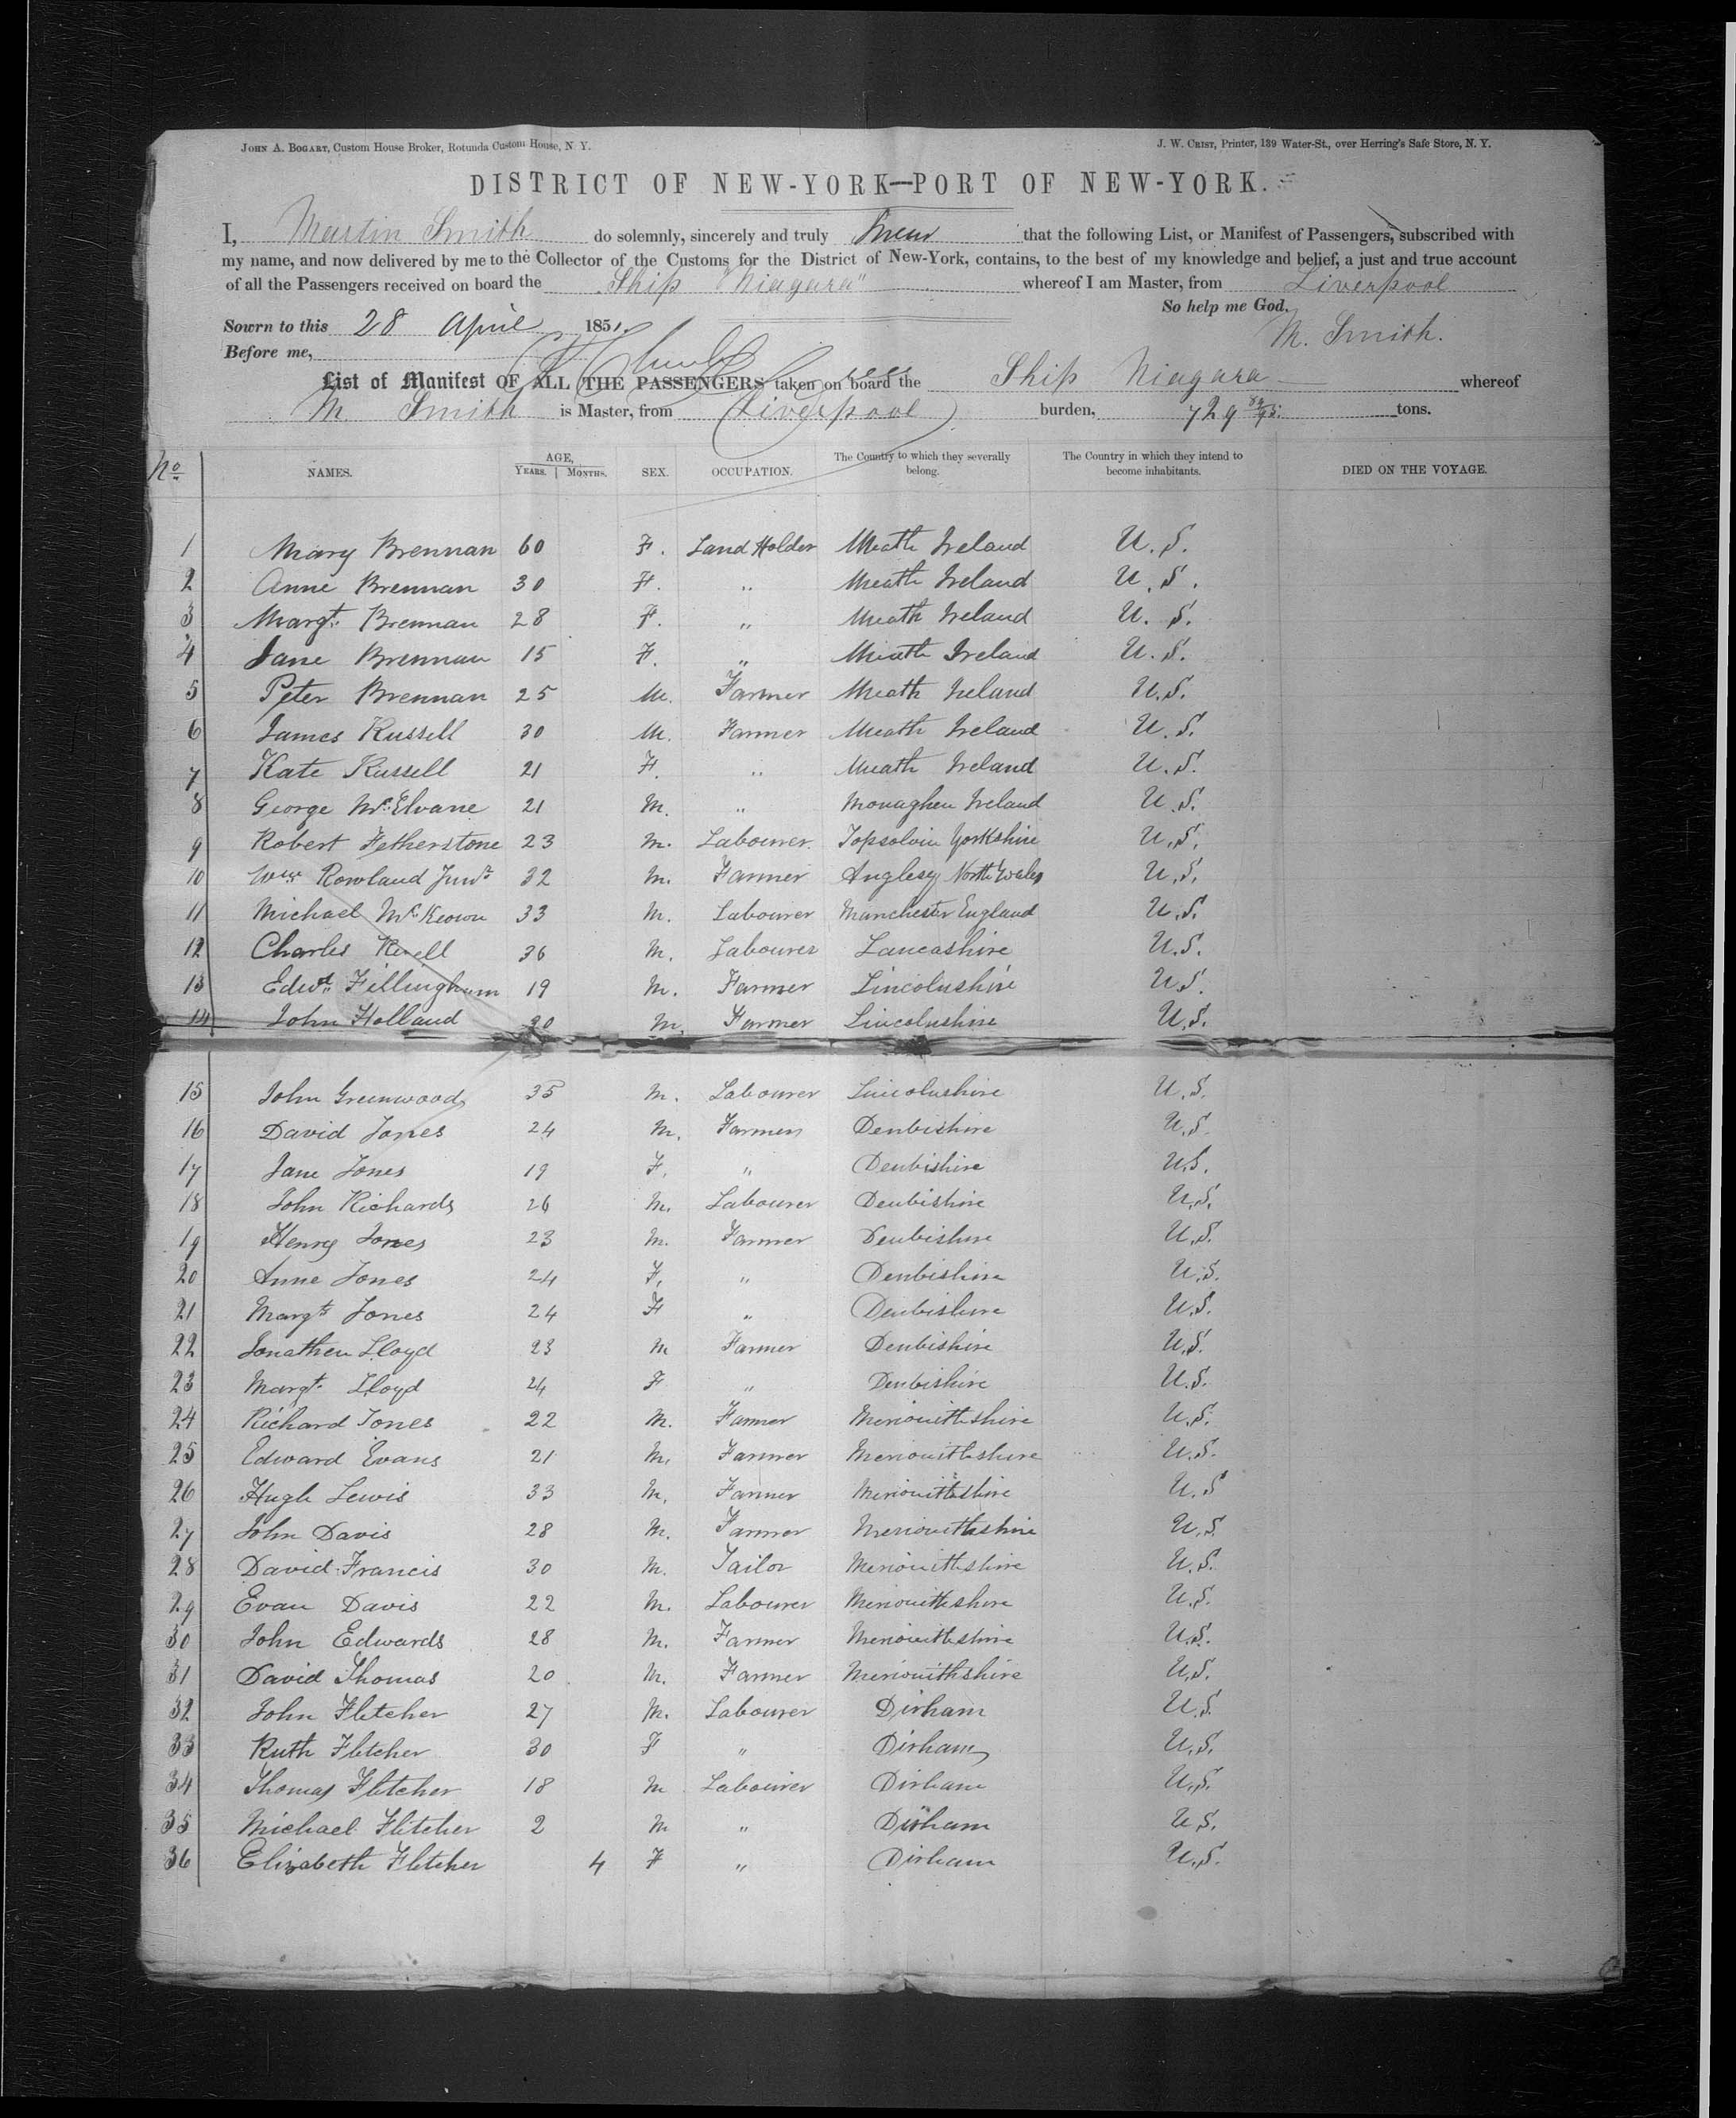 JOHN A. BOGART, Custom House Broker, Rotunda Custom House, N. Y.
J. W. CRIST, Printer, 139 Water-St., over Herring's Safe Store, N. Y.
DISTRICT OF NEW-YORK—PORT OF NEW-YORK.
I, Martin Smith do solemnly, sincerely and truly Swear that the following List, or Manifest of Passengers, subscribed with
my name, and now delivered by me to the Collector of the Customs for the District of New-York, contains, to the best of my knowledge and belief, a just and true account
of all the Passengers received on board the Ship "Niagara" whereof I am Master, from Liverpool
So help me God.
Sowrn to this 28 April 1851.
M. Smith.
Before me,
List of Manifest OF ALL THE PASSENGERS taken on board the Ship Niagara whereof
M. Smith is Master, from Liverpool burden, 729 tons.
No NAMES. AGE, YEARS. MONTHS. SEX. OCCUPATION. The Country to which they severally belong. The Country in which they intend to become inhabitants. DIED ON THE VOYAGE.
1 Mary Brennan 60 F. Land Holder Meath Ireland U.S.
2 Anne Brennan 30 F. " Meath Ireland U.S.
3 Margt. Brennan 28 F. " Meath Ireland U.S.
4 Jane Brennan 15 F. " Meath Ireland U.S.
5 Peter Brennan 25 M. Farmer Meath Ireland U.S.
6 James Russell 30 M. Farmer Meath Ireland U.S.
7 Kate Russell 21 F. " Meath Ireland U.S.
8 George McElvane 21 M. " Monaghen Ireland U.S.
9 Robert Fetherstone 23 M. Labourer Yorkshire U.S.
10 Wm. Rowland Junr 32 M. Farmer Anglesy North Wales U.S.
11 Michael McKeown 33 M. Labourer Manchester England U.S.
12 Charles 36 M. Labourer Lancashire U.S.
13 Edwd. Fillingham 19 M. Farmer Lincolnshire U.S.
14 John Holland M. Farmer Lincolnshire U.S.
15 John Greenwood 35 M. Labourer Lincolnshire U.S.
16 David Jones 24 M. Farmer Denbishire U.S.
17 Jane Jones 19 F. " Denbishire U.S.
18 John Richards 26 M. Labourer Denbishire U.S.
19 Henry Jones 23 M. Farmer Denbishire U.S.
20 Anne Jones 24 F. " Denbishire U.S.
21 Margt. Jones 24 F " Denbishire U.S.
22 Jonathen Lloyd 23 M Farmer Denbishire U.S.
23 Margt. Lloyd 24 F " Denbishire U.S.
24 Richard Jones 22 M. Farmer Merionithshire U.S.
25 Edward Evans 21 M. Farmer Merionithshire U.S.
26 Hugh Lewis 33 M. Farmer Merionithshire U.S
27 John Davis 28 M. Farmer Merionithshire U.S.
28 David Francis 30 M. Tailor Merionithshire U.S.
29 Evan Davis 22 M. Labourer Merionithshire U.S.
30 John Edwards 28 M. Farmer Merionithshire U.S.
31 David Thomas 20 M. Farmer Merionithshire U.S.
32 John Fletcher 27 M. Labourer Dirham U.S.
33 Ruth Fletcher 30 F " Dirham U.S.
34 Thomas Fletcher 18 M Labourer Dirham U.S.
35 Michael Fletcher 2 M " Dirham U.S.
36 Elizabeth Fletcher 4 F " Dirham U.S.